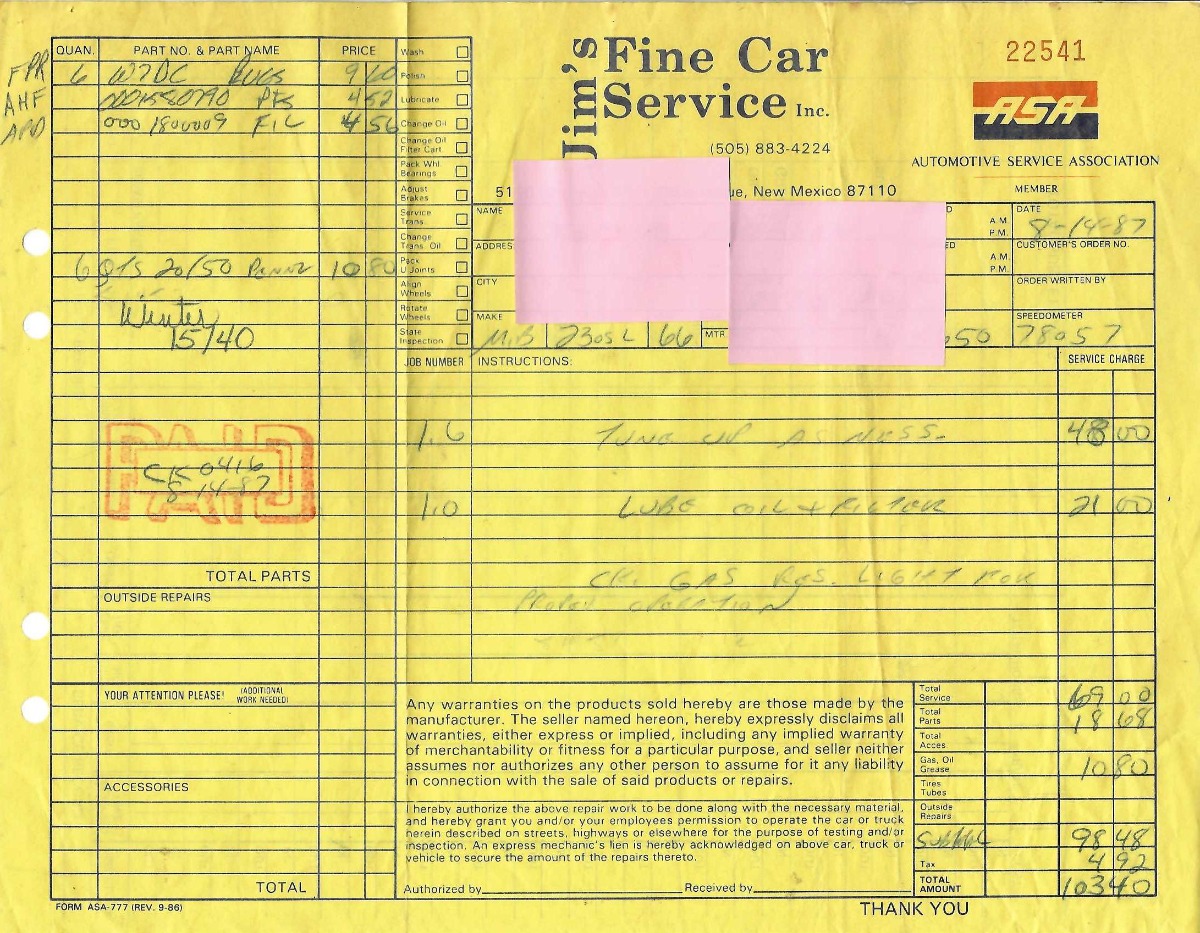 22541
Jim's Fine Car Service Inc.
(505) 883-4224
ASA
AUTOMOTIVE SERVICE ASSOCIATION
MEMBER
51 ue, New Mexico 87110
QUAN. PART NO. & PART NAME PRICE
FPR 6 W7DC PLUGS 9 60
AHF 0001580790 PTS 4 52
APD 000 1800009 FIL 4 56
6 QTS 20/50 PENNZ 10 80
Winter
15/40
Wash
Polish
Lubricate
Change Oil
Change Oil Filter Cart.
Pack Whl. Bearings
Adjust Brakes
Service Trans.
Change Trans. Oil
Pack U Joints
Align Wheels
Rotate Wheels
State Inspection
NAME
ADDRES
CITY
MAKE M.B 230SL 66 MTR
D A.M. P.M.
ED A.M. P.M.
DATE 8-14-87
CUSTOMER'S ORDER NO.
ORDER WRITTEN BY
SPEEDOMETER
50 78057
JOB NUMBER INSTRUCTIONS: SERVICE CHARGE
1.6 TUNE UP AS NESS. 48 00
1.0 LUBE OIL + FILTER 21 00
CK. GAS Res. LIGHT FOR
PROPER OPERATION
PAID
CK 0416
8-14-87
PAID
TOTAL PARTS
OUTSIDE REPAIRS
YOUR ATTENTION PLEASE! (ADDITIONAL WORK NEEDED)
ACCESSORIES
TOTAL
Any warranties on the products sold hereby are those made by the
manufacturer. The seller named hereon, hereby expressly disclaims all
warranties, either express or implied, including any implied warranty
of merchantability or fitness for a particular purpose, and seller neither
assumes nor authorizes any other person to assume for it any liability
in connection with the sale of said products or repairs.
I hereby authorize the above repair work to be done along with the necessary material,
and hereby grant you and/or your employees permission to operate the car or truck
herein described on streets, highways or elsewhere for the purpose of testing and/or
inspection. An express mechanic's lien is hereby acknowledged on above car, truck or
vehicle to secure the amount of the repairs thereto.
Authorized by Received by
Total Service 69 00
Total Parts 18 68
Total Acces.
Gas, Oil Grease 10 80
Tires Tubes
Outside Repairs
Subtotal 98 48
Tax 4 92
TOTAL AMOUNT 103 40
FORM ASA-777 (REV. 9-86)
THANK YOU